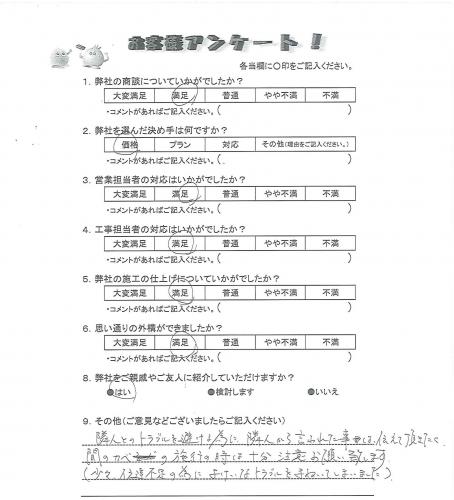 お客様アンケート！
各当欄に〇印をご記入ください。
1. 弊社の商談についていかがでしたか？
大変満足 満足 普通 やや不満 不満
・コメントがあればご記入ください。( )
2. 弊社を選んだ決め手は何ですか？
価格 プラン 対応 その他(理由をご記入ください。)
・コメントがあればご記入ください。( )
3. 営業担当者の対応はいかがでしたか？
大変満足 満足 普通 やや不満 不満
・コメントがあればご記入ください。( )
4. 工事担当者の対応はいかがでしたか？
大変満足 満足 普通 やや不満 不満
・コメントがあればご記入ください。( )
5. 弊社の施工の仕上げについていかがでしたか？
大変満足 満足 普通 やや不満 不満
・コメントがあればご記入ください。( )
6. 思い通りの外構ができましたか？
大変満足 満足 普通 やや不満 不満
・コメントがあればご記入ください。( )
8. 弊社をご親戚やご友人に紹介していただけますか？
●はい ●検討します ●いいえ
9. その他(ご意見などございましたらご記入ください)
隣人とのトラブルを避ける為に 隣人から言われた事は、伝えて頂きたく
間のカベ の施行の時は十分注意お願い致します
(少々、伝達不足の為に よけいなトラブルをまねいてしまいました)